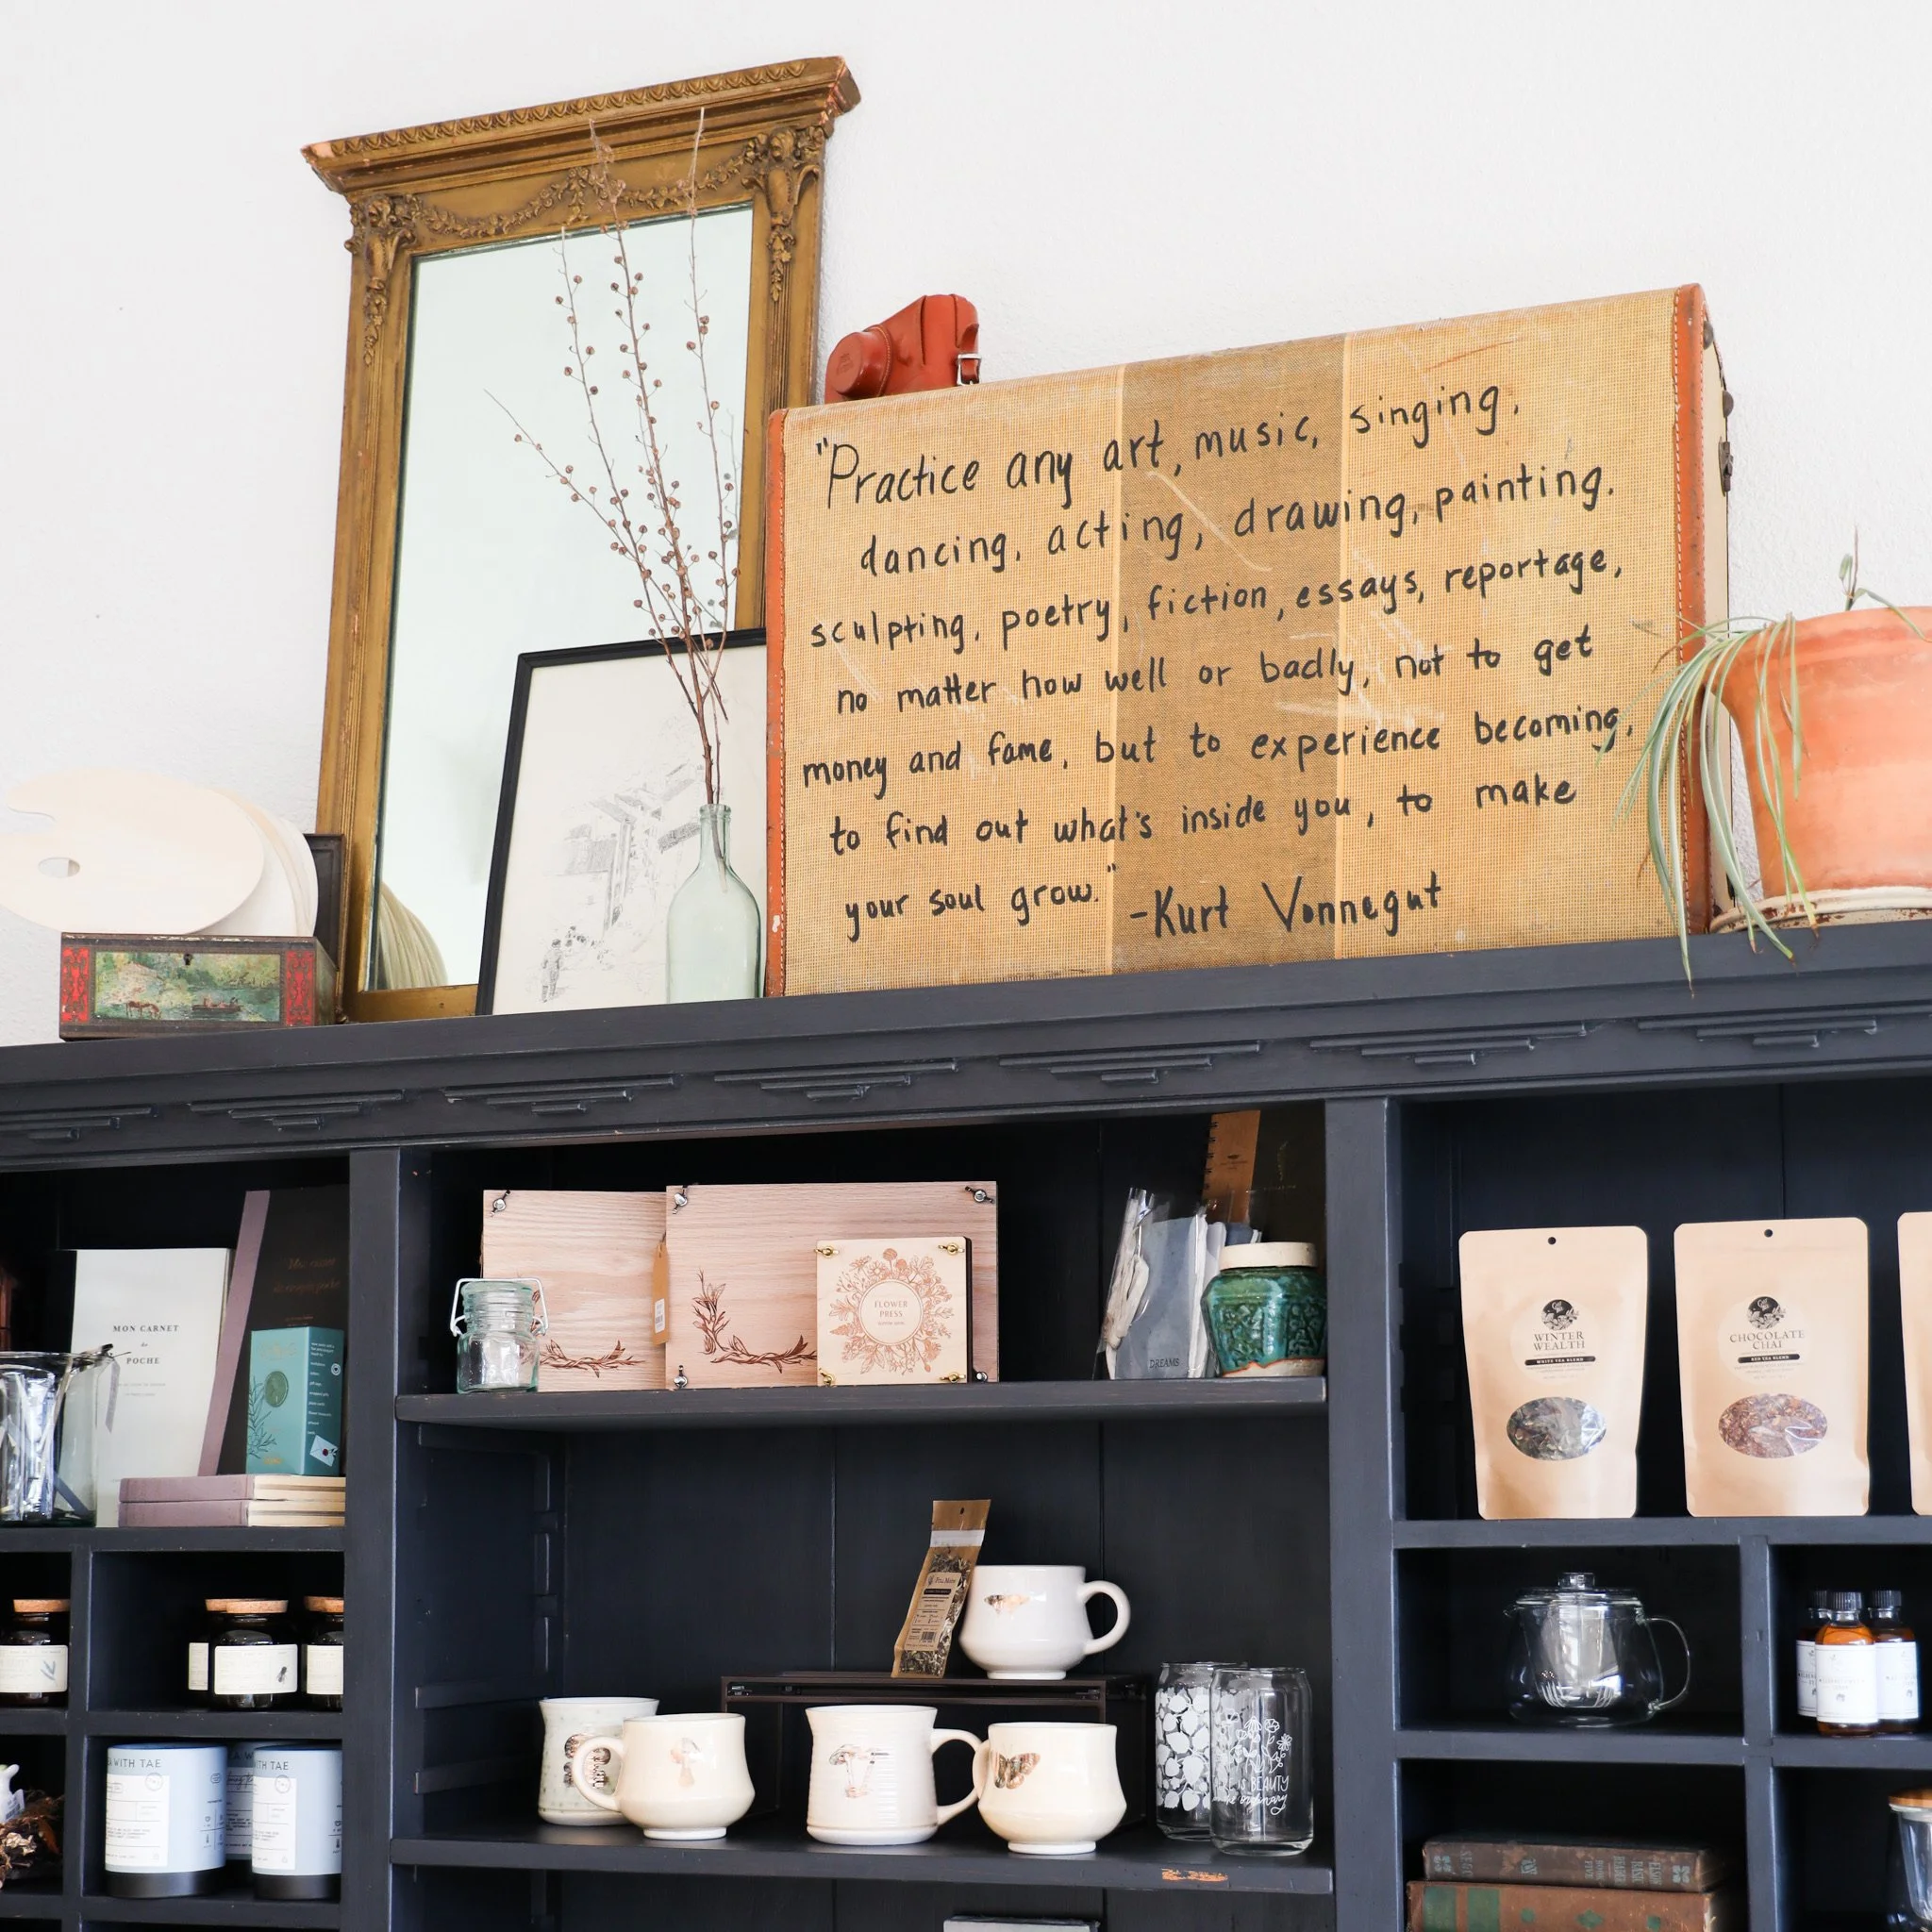 "Practice any art, music, singing,
dancing, acting, drawing, painting,
sculpting, poetry, fiction, essays, reportage,
no matter how well or badly, not to get
money and fame, but to experience becoming,
to find out what's inside you, to make
your soul grow."
-Kurt Vonnegut
MON CARNET
de
POCHE
FLOWER
PRESS
DREAMS
WINTER
WEALTH
WHITE TEA BLEND
CHOCOLATE
CHAI
RED TEA BLEND
WITH TAE
WITH TAE
IS BEAUTY
in the ordinary